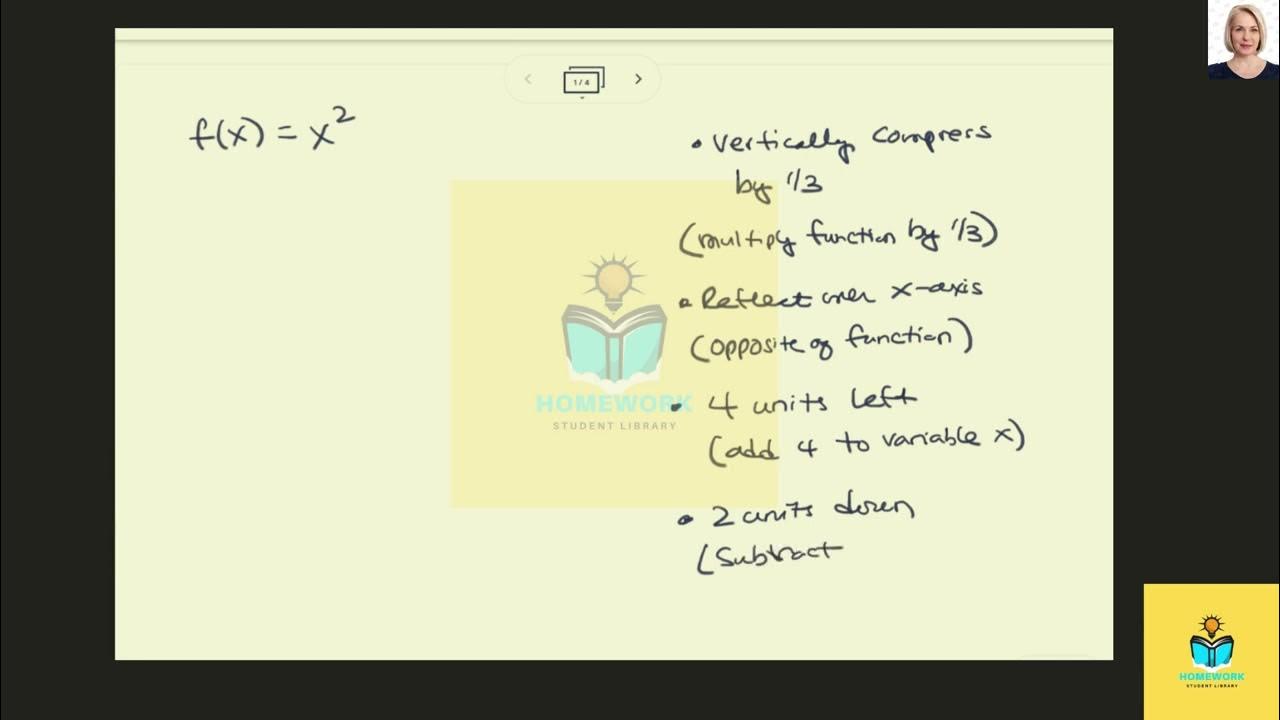 1/4
f(x) = x²
• vertically compress
by 1/3
(multiply function by 1/3)
• Reflect over x-axis
(opposite of function)
• 4 units left
(add 4 to variable x)
• 2 units down
(Subtract
HOMEWORK
STUDENT LIBRARY
HOMEWORK
STUDENT LIBRARY